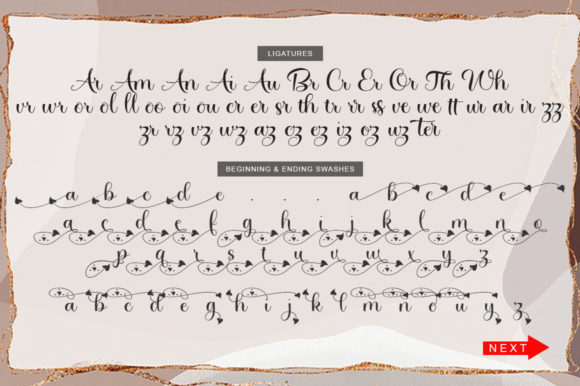 LIGATURES
Ar Am An Ai Au Br Cr Er Or Th Wh
vr wr or ol ll oo oi ou cr er sr th tr rr ss ve we tt ur ar ir zz
zr rz vz wz az cz ez iz oz uz ter
BEGINNING & ENDING SWASHES
a b c d e . . . a b c d e
a c d e f g h i j k l m n o
p q r s t u v w x y z
a b c d e g h i j k l m n o u y z
NEXT